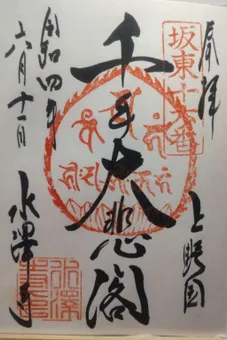 奉拝
坂東十六番
上野国
千手大悲閣
令和四年
六月十一日
水澤寺